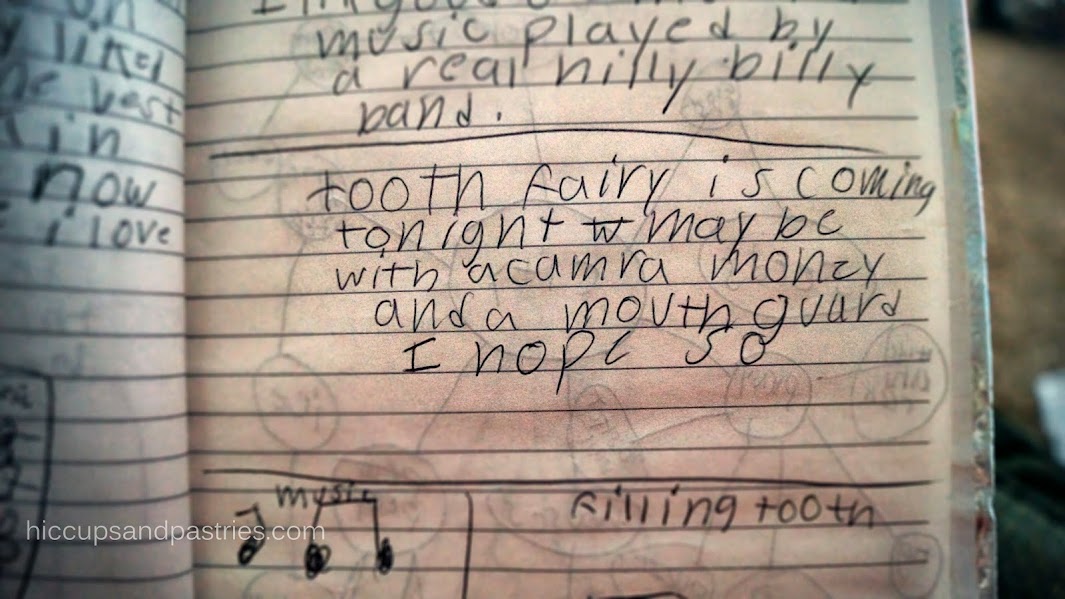 music played by
a real hilly billy
band.
tooth fairy is coming
tonight may be
with a camra money
and a mouth guard
I hope so
music
filling tooth
hiccupsandpastries.com
now
i love